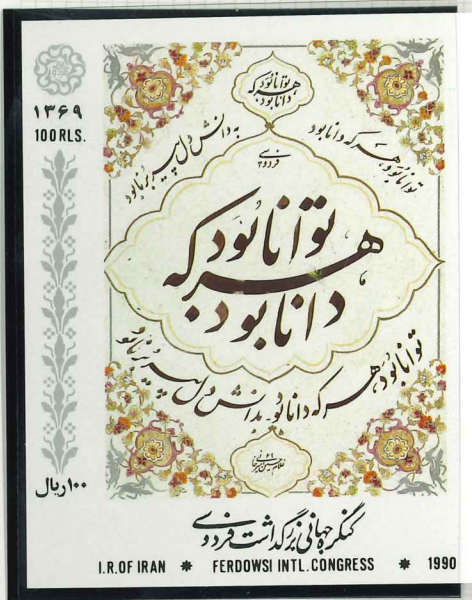 ۱۳۶۹
100 RLS.
توانا بود
هر که
دانا بود
توانا بود هر که دانا بود
به دانش دل پیر برنا بود
فردوسی
توانا بود
هر که
دانا بود
توانا بود هر که دانا بود
بدانش دل پیر برنا بود
۱۰۰ ریال
کنگره جهانی بزرگداشت فردوسی
I.R.OF IRAN * FERDOWSI INTL.CONGRESS * 1990